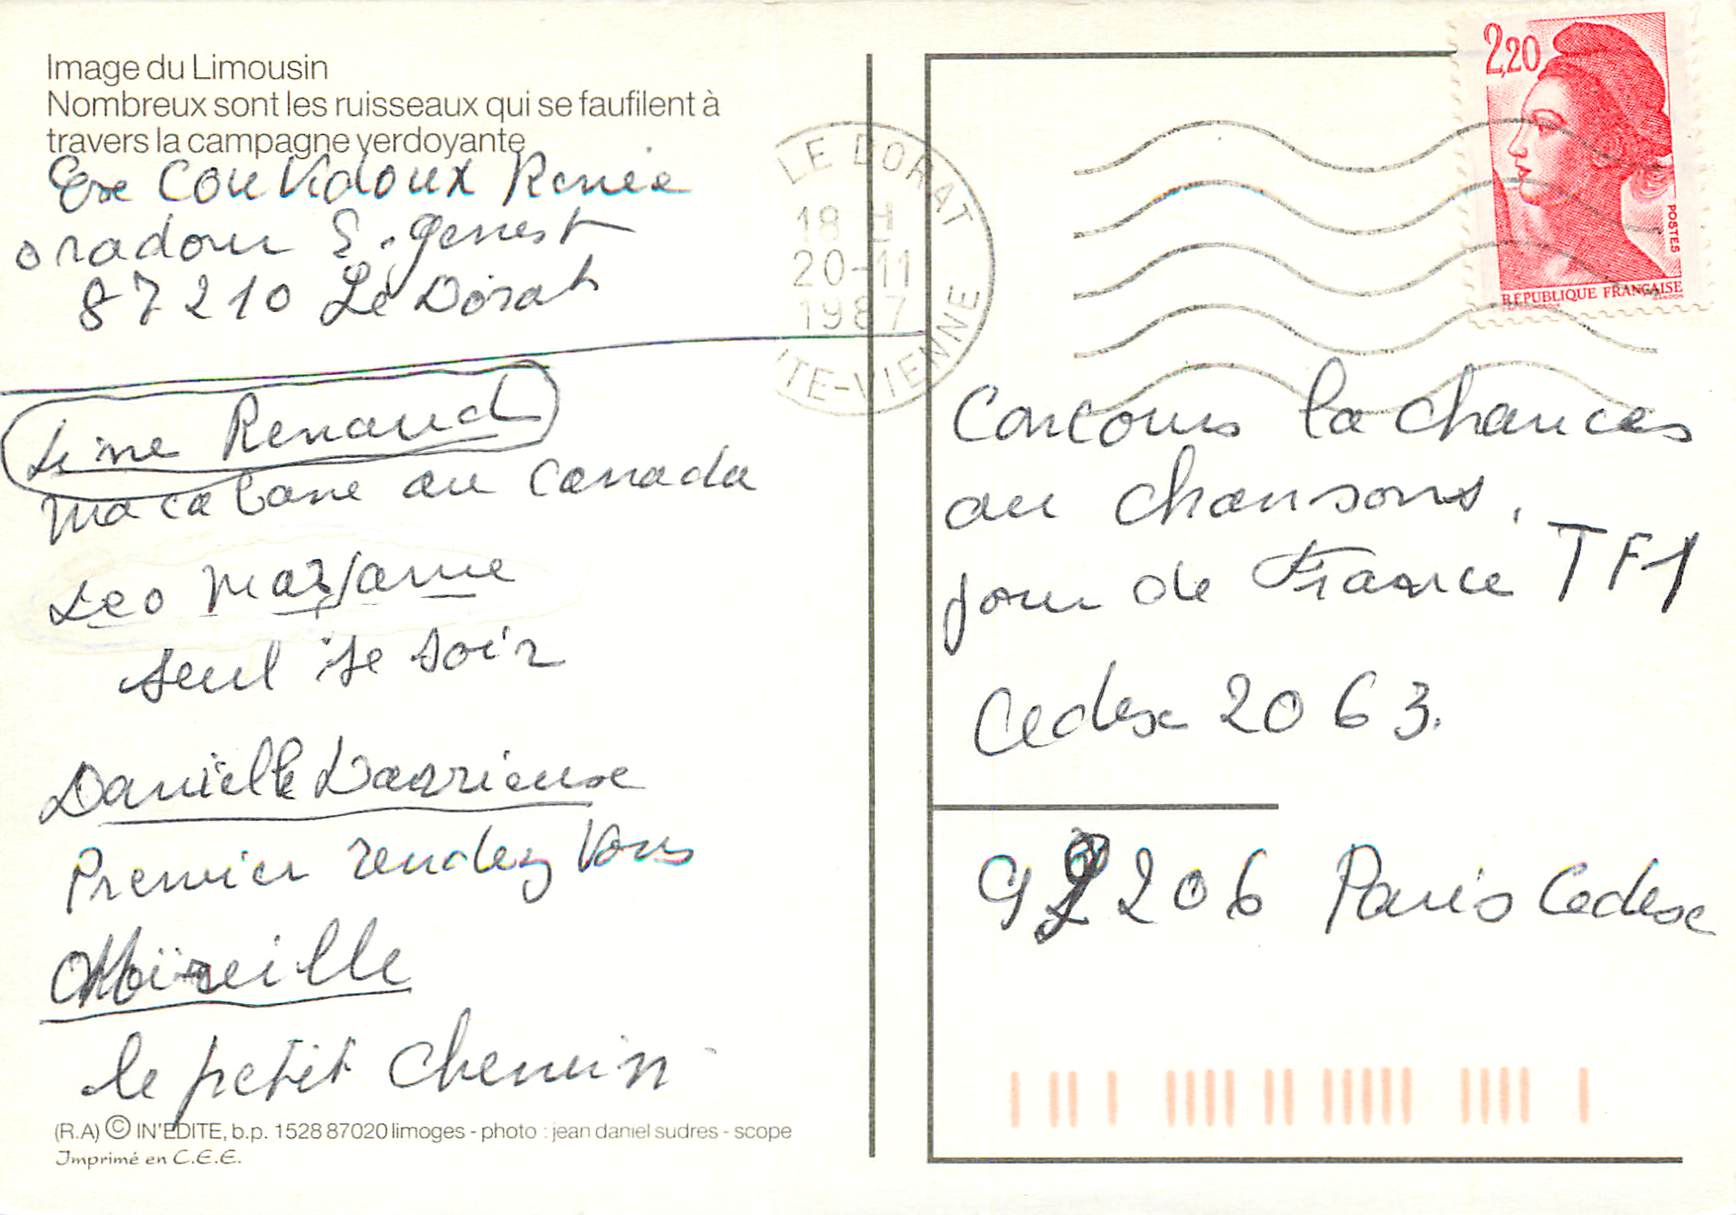 Image du Limousin
Nombreux sont les ruisseaux qui se faufilent à
travers la campagne verdoyante
Couvidoux Renée
oradour S. genest
87210 Le Dorat
Line Renaud
ma cabane au Canada
Leo Marjane
seul se soir
Danielle Darrieuxe
Premier rendez vous
Mireille
le petit chemin
(R.A) © IN'EDITE, b.p. 1528 87020 limoges - photo : jean daniel sudres - scope
Imprimé en C.E.E.
LE DORAT
18 H
20-11
1987
TE-VIENNE
2,20
POSTES
REPUBLIQUE FRANCAISE
Concours la chances
au chansons,
jour de France TF1
Cedex 2063.
92206 Paris Cedex